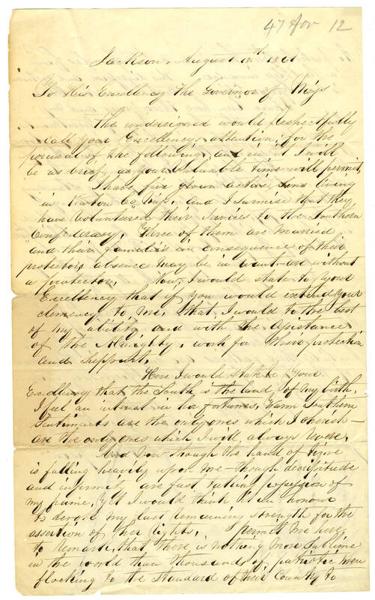 47 for 12
Jackson, August 10th 1861
To His Excellency the Governor of Miss
The undersigned would Respectfully
call your Excellency's attention, for the
perusal of the following, and in it I will
be as brief, as your valuable time will permit
I have five grown actor, sons living
in Co, Miss, and I surmise that they
have volunteered their services to the Southern
Confederacy, three of them are married
and their families in consequence of their
protectors absence may be in want and without
a protector. Now, I would state to your
Excellency that if you would extend your
clemency to me, that I would to the best
of my ability, and with the Assistance
of the Almighty, work for their protection
and support.
Here I would state to your
Excellency that the South is the land of my birth,
I feel an interest in her fortunes, warm Southern
Sentiments are the only ones which I cherish—
are the only ones which I will always have.
And now though the hand of time
is falling heavily upon me—though decrepitude
and infirmity are fast taking possession of
my frame, yet I would think it an honour
to devote my last remaining strength for the
assertion of her rights. Permit me here
to Remark, that there is nothing more sublime
in the world than thousands of patriotic men
flocking to the Standard of their Country to